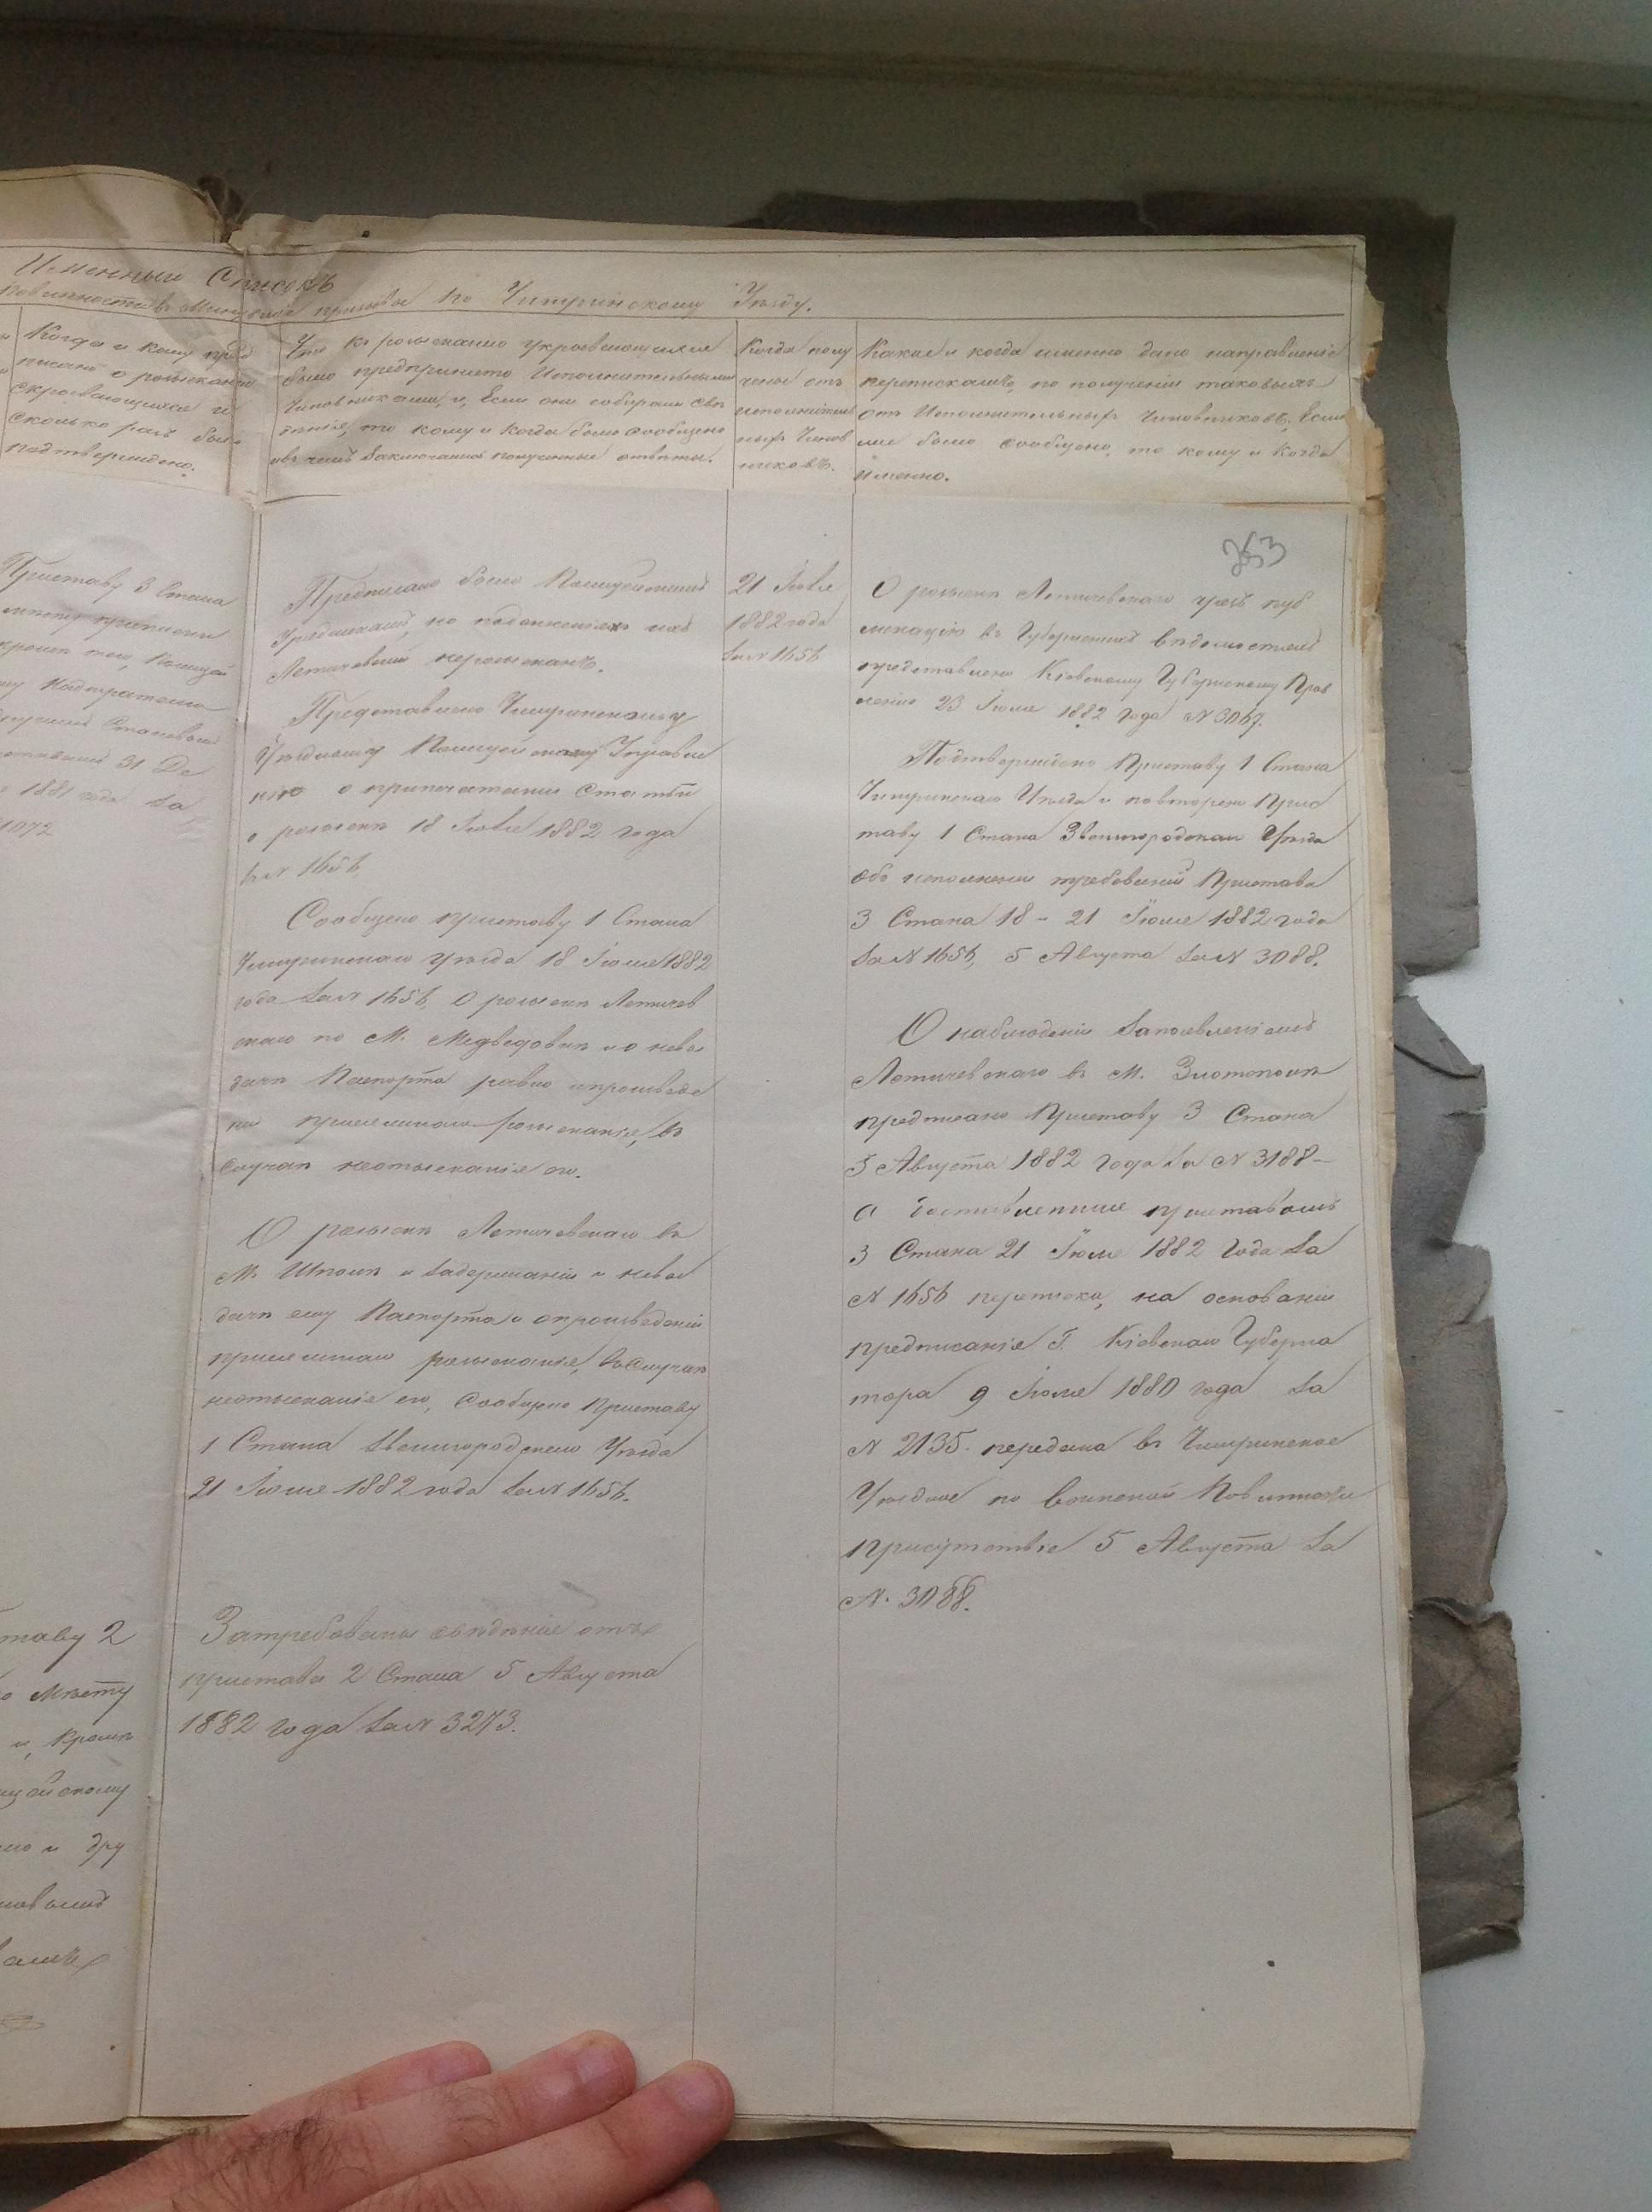 Именный Списокъ
повинности въ призывы по Чигиринскому Уѣзду.
Когда и кому пред
писано о розысканіи
скрывающихся и
сколько разъ было
подтверждено.
Что къ розысканію укрывающихся
было предпринято Исполнительными
Чиновниками, и, Если они собирали свѣ
денія, то кому и когда было сообщено
и въ чемъ заключались полученные отвѣты.
Когда полу
чены отъ
исполнитель
ныхъ Чинов
никовъ.
Какое и когда именно дано направленіе
перепискамъ, по полученіи таковыхъ
отъ Исполнительныхъ Чиновниковъ, Если
же было сообщено, то кому и когда
Именно.
263
Приставу 3 Стана
кромѣ того, Полицей
Становымъ
31 Де
1881 года за
1072
таву 2
Мѣсту
и, Кромѣ
цейскому
и дру
Предписано было Полицейскимъ
Урядникамъ, но по донесеніямъ ихъ
Летичевскій неразысканъ.
Представлено Чигиринскому
Уѣздному Полицейскому Управле
нію о припечатаніи Статьи
о розыскѣ 18 Іюля 1882 года
за N 1656,
Сообщено приставу 1 Стана
Чигиринскаго уѣзда 18 Іюля 1882
года за N 1656, О розыскѣ Летичев
скаго по М. Медведовкѣ и о невы
дачѣ Паспорта равно и произведе
ніи розысканія, въ
случаѣ неотысканія его.
О розыскѣ Летичевскаго въ
М. Шполѣ и задержаніи и невы
дачѣ ему Паспорта и о произведеніи
розысканія, въ случаѣ
неотысканія его, Сообщено Приставу
1 Стана Звенигородскаго Уѣзда
21 Іюля 1882 года за N 1656.
Затребованы свѣдѣнія отъ
пристава 2 Стана 5 Августа
1882 года за N 3273.
21 Іюля
1882 года
за N 1656
О розыскѣ Летичевскаго чрезъ пуб
ликацію въ Губернскихъ вѣдомостяхъ
представлено Кіевскому Губернскому Прав
ленію 23 Іюля 1882 года N 3067.
Подтверждено Приставу 1 Стана
Чигиринскаго Уѣзда и повторено Прис
таву 1 Стана Звенигородскаго Уѣзда
объ исполненіи требованій Пристава
3 Стана 18 и 21 Іюля 1882 года
за N 1656, 5 Августа за N 3088.
О наблюденіи за появленіемъ
Летичевскаго въ М. Златополѣ
предписано Приставу 3 Стана
5 Августа 1882 года за N 3188 –
а доставленная приставомъ
3 Стана 21 Іюля 1882 года за
N 1656 переписка, на основаніи
предписанія Г. Кіевскаго Губерна
тора 9 Іюля 1880 года за
N 2135. передана въ Чигиринское
Уѣздное по воинской Повинности
Присутствіе 5 Августа за
N. 3088.